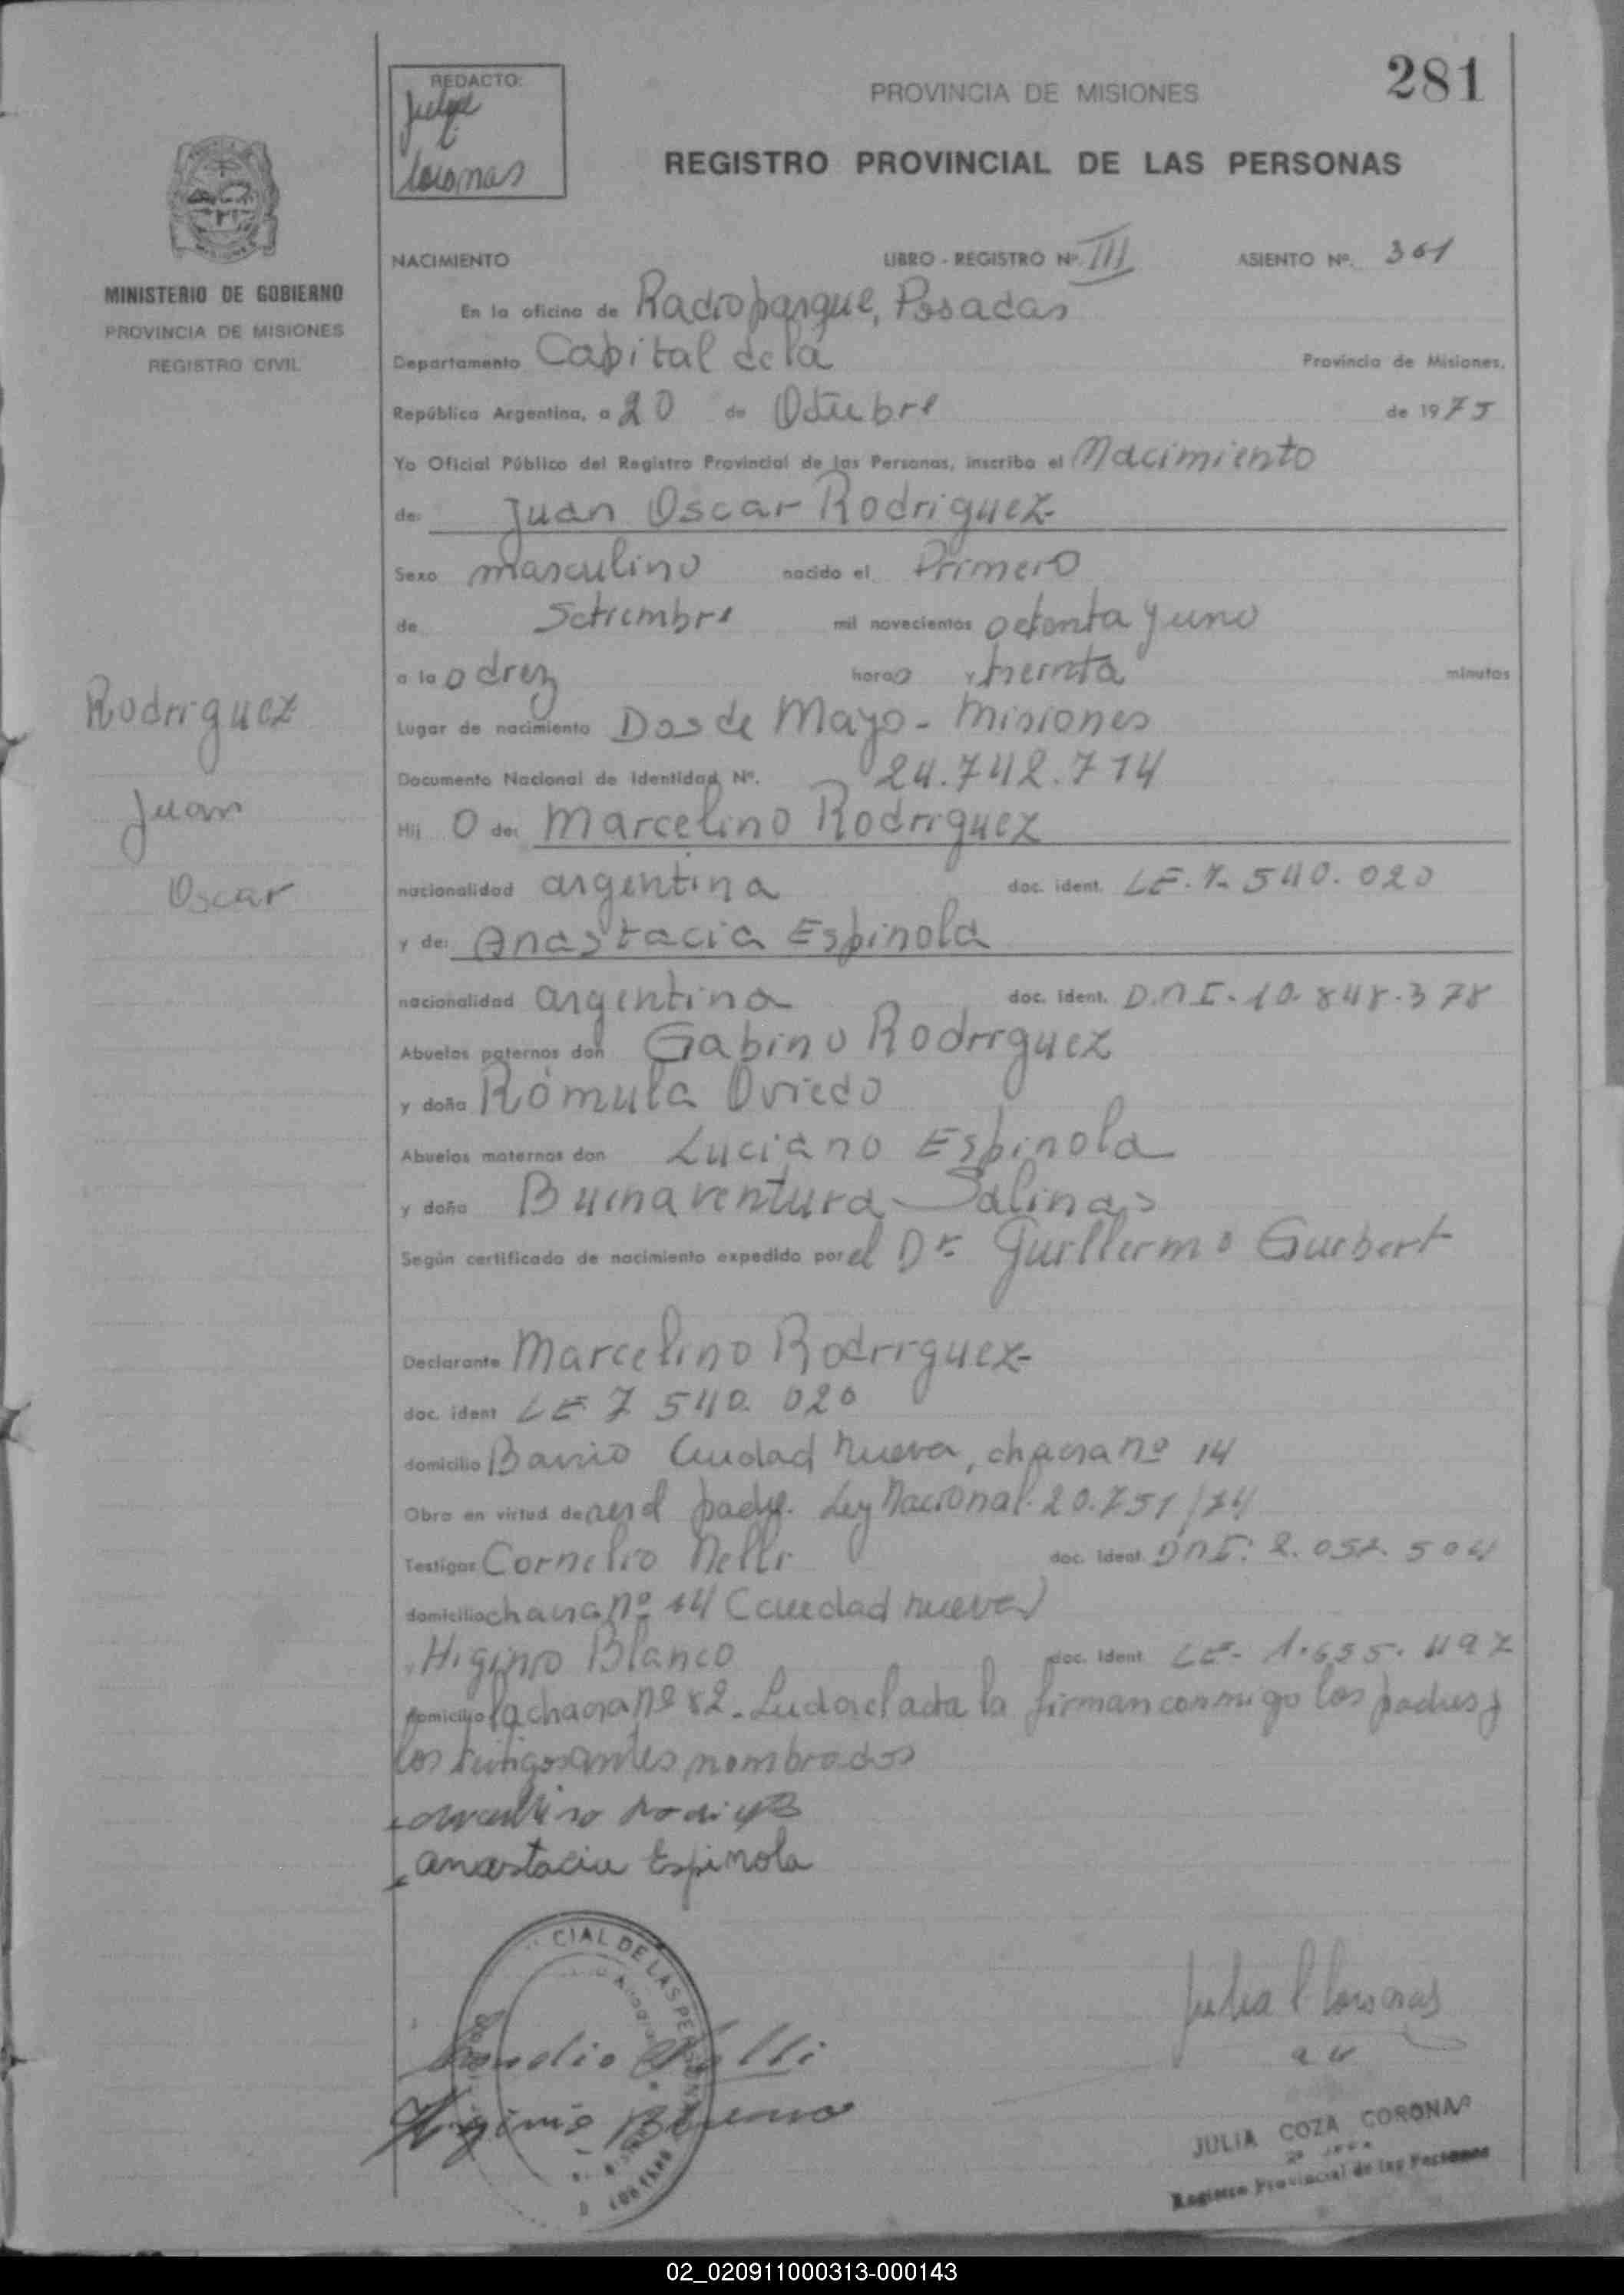 281
REDACTO:
Coronas
PROVINCIA DE MISIONES
REGISTRO PROVINCIAL DE LAS PERSONAS
MINISTERIO DE GOBIERNO
PROVINCIA DE MISIONES
REGISTRO CIVIL
NACIMIENTO LIBRO - REGISTRO Nº. III ASIENTO Nº. 361
En la oficina de Radioparque, Posadas
Departamento Capital de la Provincia de Misiones,
República Argentina, a 20 de Octubre de 1975
Yo Oficial Público del Registro Provincial de las Personas, inscribo el Nacimiento
de: Juan Oscar Rodriguez
Sexo masculino nacido el Primero
de Setiembre mil novecientos setenta y uno
a la o diez horas y treinta minutos
Lugar de nacimiento Dos de Mayo - Misiones
Documento Nacional de Identidad Nº. 24.742.714
Hij o de: Marcelino Rodriguez
nacionalidad argentina doc. ident. LE. 7. 540. 020
y de: Anastacia Espinola
nacionalidad argentina doc. ident. D.N.I. 10. 848. 378
Abuelos paternos don Gabino Rodriguez
y doña Rómula Oviedo
Abuelos maternos don Luciano Espinola
y doña Buenaventura Salinas
Según certificado de nacimiento expedido por el Dr. Guillermo
Rodriguez
Juan
Oscar
Declarante Marcelino Rodriguez
doc. ident LE 7 540. 020
domicilio Barrio Ciudad Nueva, chacra nº 14
Obra en virtud de ser el padre. Ley Nacional 20.751/74
Testigos Cornelio Nelli doc. Ident. DNI. 2. 057. 504
domicilio chacra nº 14 Ciudad nueva
Higinio Blanco doc. Ident LE- 1.655. 497
domicilio la chacra nº 82. Leida el acta la firman conmigo los padres y
los testigos antes nombrados
Marcelino Rodriguez
Anastacia Espinola
CIAL DE LAS PERSONAS
Cornelio Nelli
Higinio Blanco
Julia C Coronas
JULIA COZA CORONAS
Registro Provincial de las Personas
02_020911000313-000143